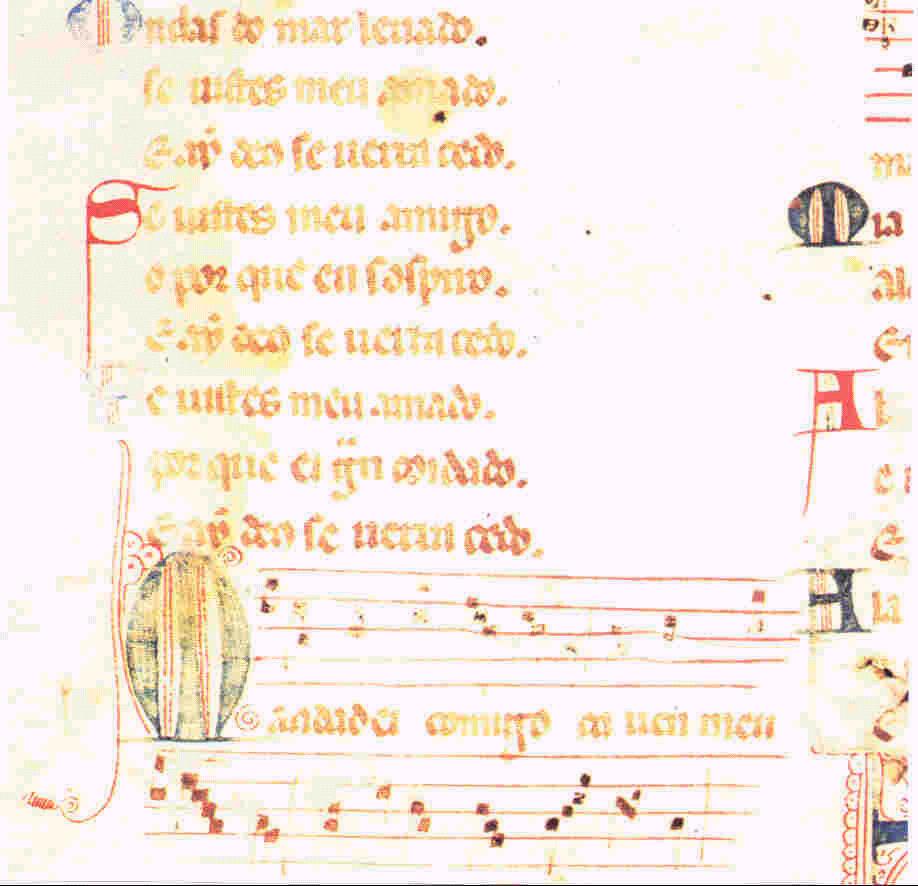 Ondas do mar leuado.
se uistes meu amado.
E ay deo se uerra cedo.
Se uistes meu amigo.
o por que eu sospiro.
E ay deo se uerra cedo.
Se uistes meu amado.
por que ei gran coidado.
E ay deo se uerra cedo.
Mandad ei comigo ca uen meu